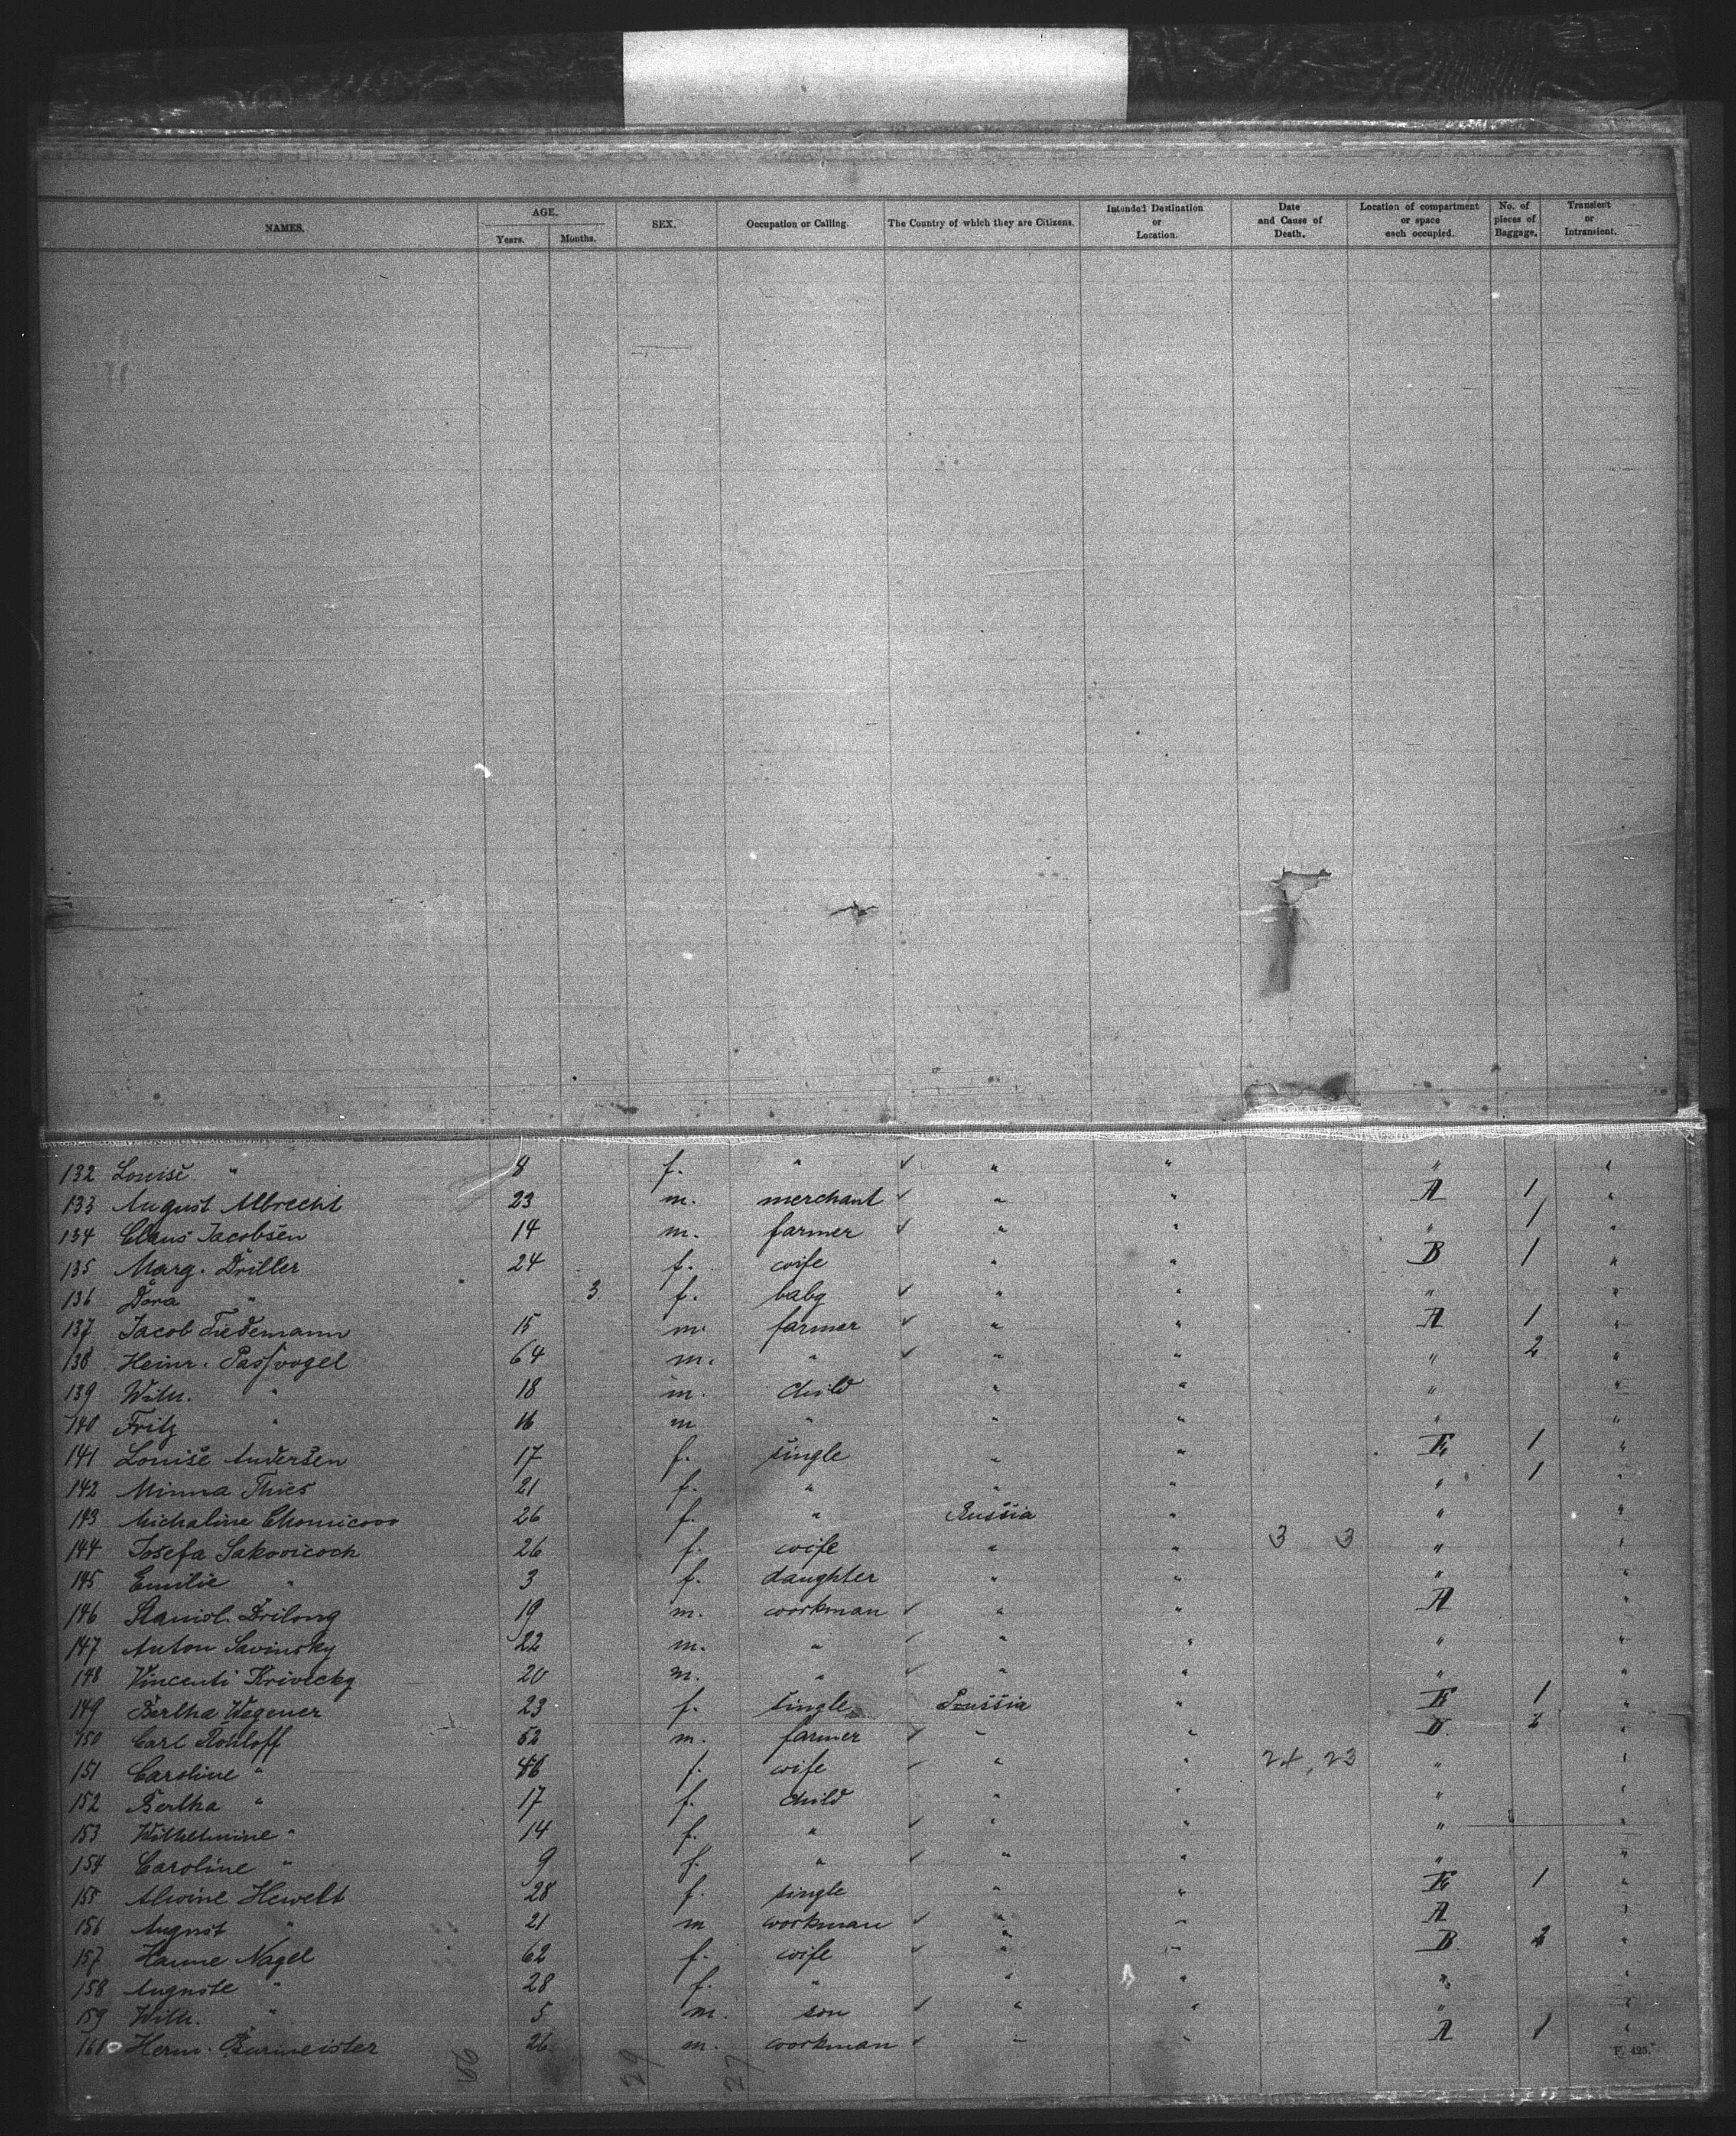 NAMES. AGE. Years. Months. SEX. Occupation or Calling. The Country of which they are Citizens. Intended Destination or Location. Date and Cause of Death. Location of compartment or space each occupied. No. of pieces of Baggage. Transient or Intransient.
132 Louise " 8 f. " ✓ " " " "
133 August Albrecht 23 m. merchant ✓ " " A 1 "
134 Claus Jacobsen 14 m. farmer ✓ " " " 1 "
135 Marg. Driller 24 f. wife " " B 1 "
136 Dora " 3 f. baby ✓ " " " "
137 Jacob Tiedemann 15 m. farmer ✓ " " A 1 "
138 Heinr. Passvogel 64 m. " ✓ " " " 2 "
139 Wilh. " 18 m. child " " " "
140 Fritz " 16 m " " " " "
141 Louise Andersen 17 f. single " " E 1 "
142 Minna Thies 21 f. " " " " 1 "
143 Michaline 26 f. " Russia " " "
144 Josefa Sakovicoch 26 f. wife " " 3 3 " "
145 Emilie " 3 f. daughter " " " "
146 Stanisl. Drilong 19 m. workman ✓ " " A "
147 Anton Savinsky 22 m. " ✓ " " " "
148 Vincenti Krivicky 20 m. " ✓ " " " "
149 Bertha Wegener 23 f. single Prussia " E 1 "
150 Carl Rohloff 52 m. farmer ✓ " " B. 2 "
151 Caroline " 46 f. wife ✓ " " 24, 23 " "
152 Bertha " 17 f. child " " " "
153 Wilhelmine " 14 f. " ✓ " " " "
154 Caroline " 9 f. " ✓ " " " "
155 Alwine Hewelt 28 f. single " " E 1 "
156 August " 21 m workman ✓ " " A "
157 Hanne Nagel 62 f. wife ✓ " " B. 2 "
158 Auguste " 28 f. " " " " "
159 Wilh. " 5 m. son ✓ " " " "
160 Herm. Burmeister 26 m. workman ✓ " " A 1 "
F. 425.
56 29 27